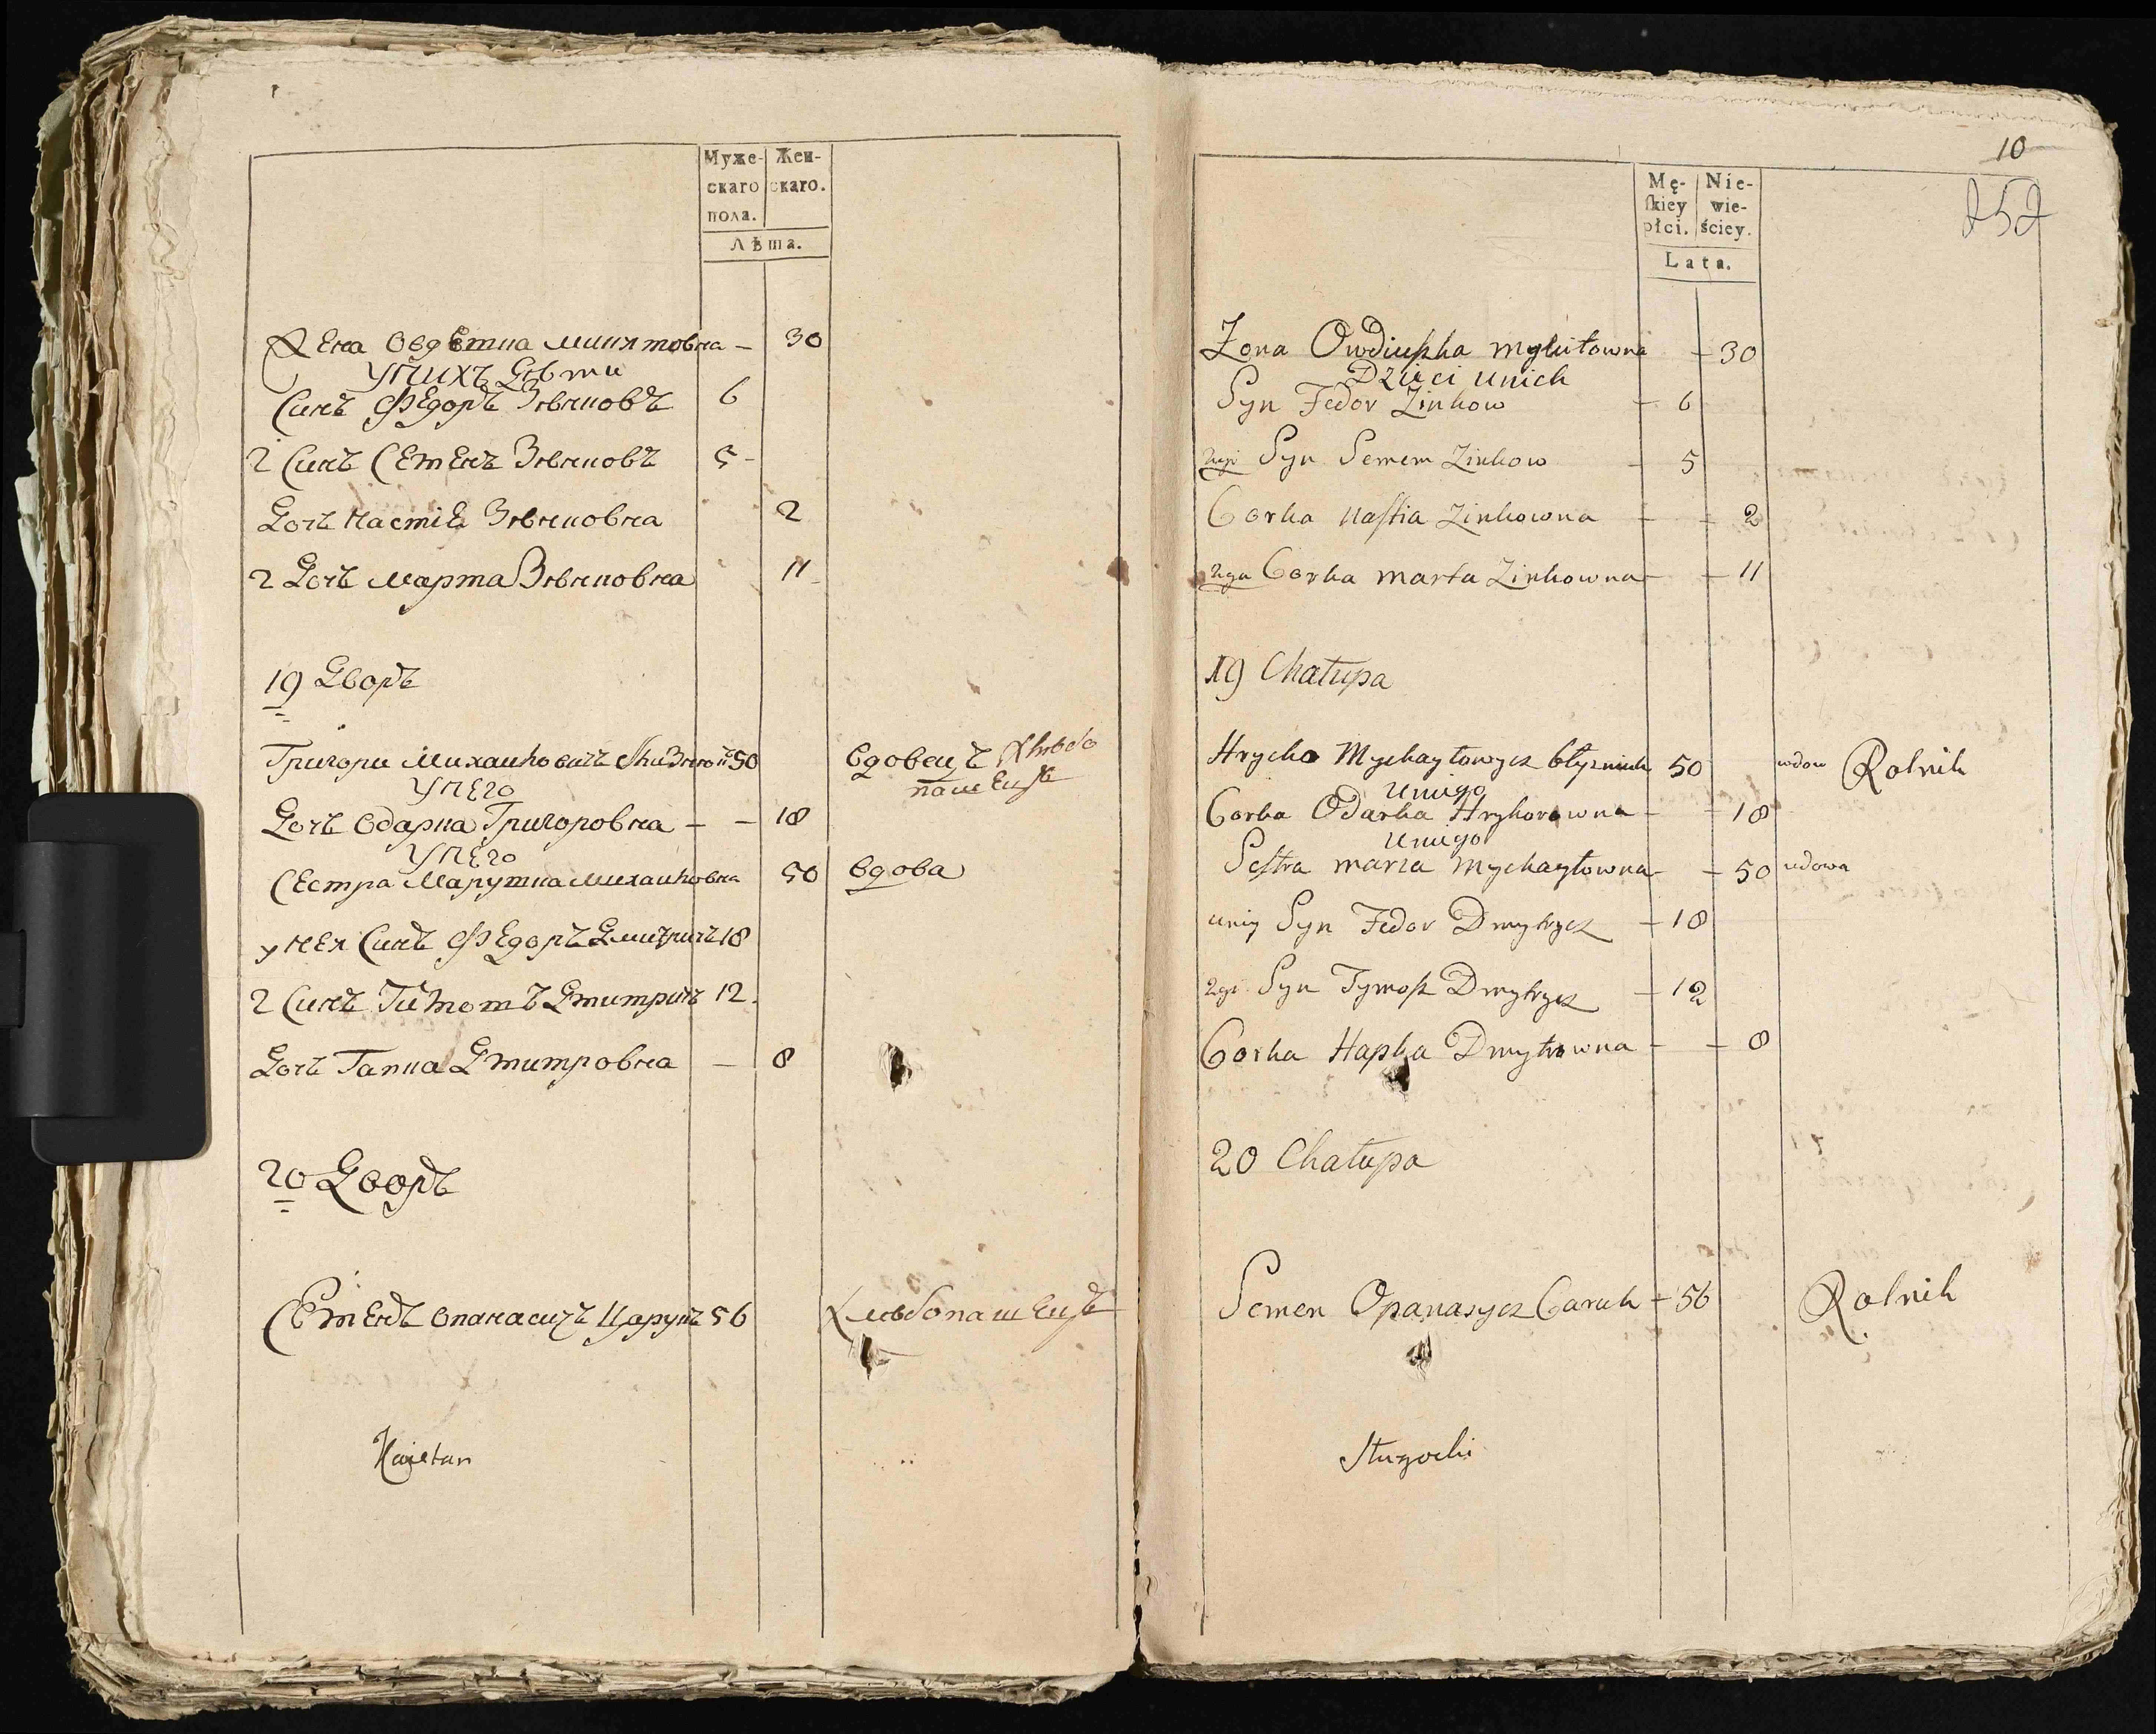 Муже-
скаго
пола.
Жен-
скаго.
Лѣта.
Жена Овдѣтка Микитовна — 30
У них Дѣти
Синъ Федоръ Зѣнковъ 6
2 Синъ Семенъ Зѣнковъ 5 -
Дочъ Настіѧ Зѣнковна 2
2 Дочъ Марта Зѣнковна 11
19 Дворъ
Григори Михайловичъ 50 вдовецъ Хлѣбо
пашецъ
У него
Дочъ Одарка Григоровна — — 18
У него
Сестра Марушка Михайловна 50 вдова
у нея Синъ Федоръ Дмитричъ 18
2 Синъ Тимошъ Дмитричъ 12
Дочъ Гапка Дмитровна — 8
20 Дворъ
Семенъ Опанасичъ Царукъ 56 Хлѣбопашецъ
Kaietan
10
252
Mę-
ſkiey
płci.
Nie-
wie-
ściey.
Lata.
Zona Owdiuszka Mykitowna — 30
Dzieci unich
Syn Fedor Zinkow — 6
2gi Syn Semem Zinkow — 5
Corka Naſtia Zinkowna — — 2
2ga Corka Marta Zinkowna — — 11
19 Chałupa
Hrycko Mychayłowycz 50 wdow Rolnik
Uniego
Corka Odarka Hryhorowna — — 18
Uniego
Sestra Maria Mychayłowna — — 50 wdowa
uniy Syn Fedor Dmytrycz — 18
2gi Syn Tymosz Dmytrycz — 12
Corka Hapka Dmytrowna — — 8
20 Chałupa
Semen Opanasycz Caruk — 56 Rolnik